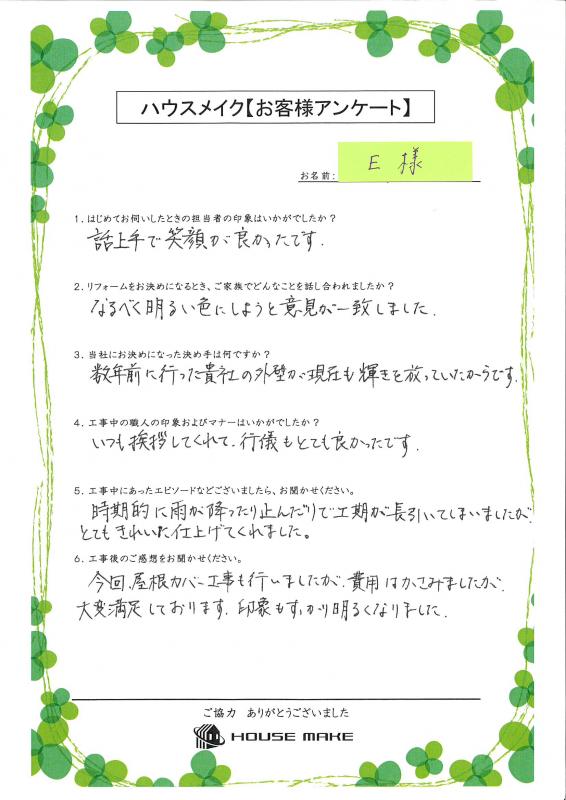 ハウスメイク【お客様アンケート】
お名前: E 様
1.はじめてお伺いしたときの担当者の印象はいかがでしたか？
話上手で笑顔が良かったです.
2.リフォームをお決めになるとき、ご家族でどんなことを話し合われましたか？
なるべく明るい色にしようと意見が一致しました.
3.当社にお決めになった決め手は何ですか？
数年前に行った貴社の外壁が現在も輝きを放っていたからです.
4.工事中の職人の印象およびマナーはいかがでしたか？
いつも挨拶してくれて、行儀もとても良かったです.
5.工事中にあったエピソードなどございましたら、お聞かせください。
時期的に雨が降ったり止んだりで工期が長引いてしまいましたが
とてもきれいに仕上げてくれました。
6.工事後のご感想をお聞かせください。
今回、屋根カバー工事も行いましたが、費用はかさみましたが、
大変満足しております. 印象もすっかり明るくなりました.
ご協力　ありがとうございました
HOUSE MAKE